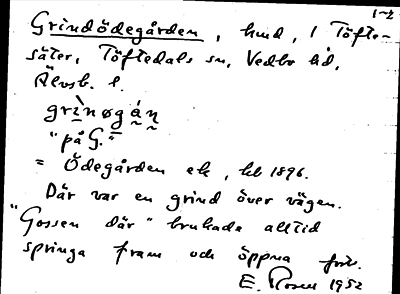 1-2
Grindödegården, hmd, i Töfte-
säter, Töftedals sn, Vedbo hd,
Älvsb. l.
grìnøgán
"på G."
= Ödegården ek, kbl 1896.
Där var en grind över vägen.
"Gossen där" brukade alltid
springa fram och öppna
E. Rosell 1952